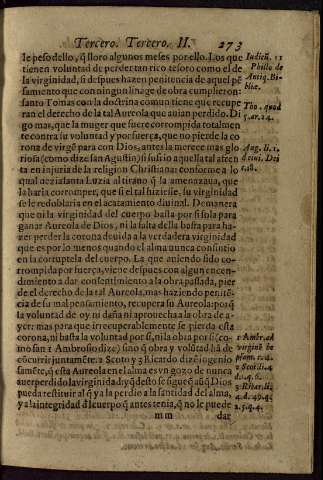 Tercero. Tercero. II. 273
le peso dello, q̃ lloro algunos meses por ello. Los que
tienen voluntad de perder tan rico tesoro como el de
la virginidad, si despues hazen penitencia de aquel pẽ
samiento que con ningun linage de obra cumplieron:
santo Tomas con la doctrina comun tiene que recupe
ran el derecho de la tal Aureola que auian perdido. Di
go mas, que la muger que fuere corrompida totalmen
te contra su voluntad y por fuerça, que no pierde la co
rona de virgẽ para con Dios, antes la merece mas glo
riosa (como dize san Agustin) si sufrio aquella tal afren
ta en injuria de la religion Christiana: conforme a lo
qual dezia santa Luzia al tirano q̃ la amenazaua, que
la haria corromper, que si el tal hiziesse, su virginidad
se le redoblaria en el acatamiento diuinal. Demanera
que ni la virginidad del cuerpo basta por si sola para
ganar Aureola de Dios, ni la falta della basta para ha
zer perder la corona deuida a la verdadera virginidad
que es por lo menos quando el alma nunca consintio
en la corruptela del cuerpo. La que auiendo sido cor
rompida por fuerça, viene despues con algun encen-
dimiento a dar consentimiento a la obra passada, pier
de el derecho de la tal Aureola, mas haziendo peniten
cia de su mal pensamiento, recupera su Aureola: porq̃
la voluntad de oy ni daña ni aprouecha a la obra de a-
yer: mas para que irrecuperablemente se pierda esta
corona, ni basta la voluntad por si, ni la obra por si (co
mo san 1 Ambrosio dize) sino q̃ obra y volũtad hã de
cõcurrir juntamẽte. 2 Scoto y 3 Ricardo dizẽ ingenio
samẽte, q̃ esta Aureola en el alma es vn gozo de nunca
auer perdido la virginidad: y q̃ desto se sigue q̃ aũq̃ Dios
pueda restituir al q̃ ya la perdio a la santidad del alma,
y a la integridad d̃l cuerpo q̃ antes tenia, q̃ no le puede
mm dar
Indiciũ. 11
Philo de
Antiq. Bi-
bliæ.
Tho. quod
5. ar. 24.
Aug. li. 1.
d ciui. Dei
c. 18.
1 Ambr. ad
virginẽ la-
psam. c. 4.
2 Scot. li. 4.
d. 49. q. 6.
3 Ricar. li.
4. d. 49. ar.
2. 5. q. 4.